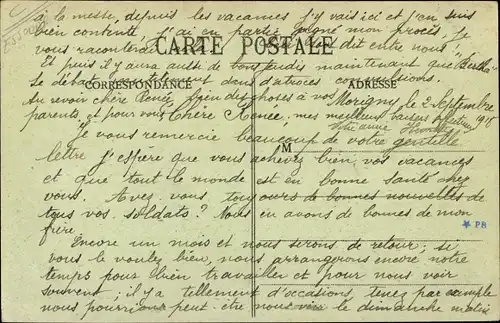 à la messe, depuis les vacances j'y vais ici et j'en suis
bien contente, j'ai en partie gagné mon procès. Je
vous raconterai dit entre nous!
CARTE POSTALE
Et puis il y aura aussi de bons jeudis maintenant que "Bertha"
se débat dans d'atroces convulsions.
CORRESPONDANCE
ADRESSE
Au revoir chère Renée, bien des choses à vos
parents, et pour vous chère Renée, mes meilleurs baisers
Morigny le 2 Septembre
1918
Je vous remercie beaucoup de votre gentille
M
lettre j'espère que vous achevez bien vos vacances
et que tout le monde est en bonne santé chez
vous. Avez vous toujours de bonnes nouvelles de
tous vos soldats? Nous en avons de bonnes de mon
frère.
* PB
Encore un mois et nous serons de retour; si
vous le voulez bien, nous arrangerons encore notre
temps pour bien travailler et pour nous voir
souvent; il y a tellement d'occasions, tenez par exemple
nous pourrions peut être nous voir le dimanche matin